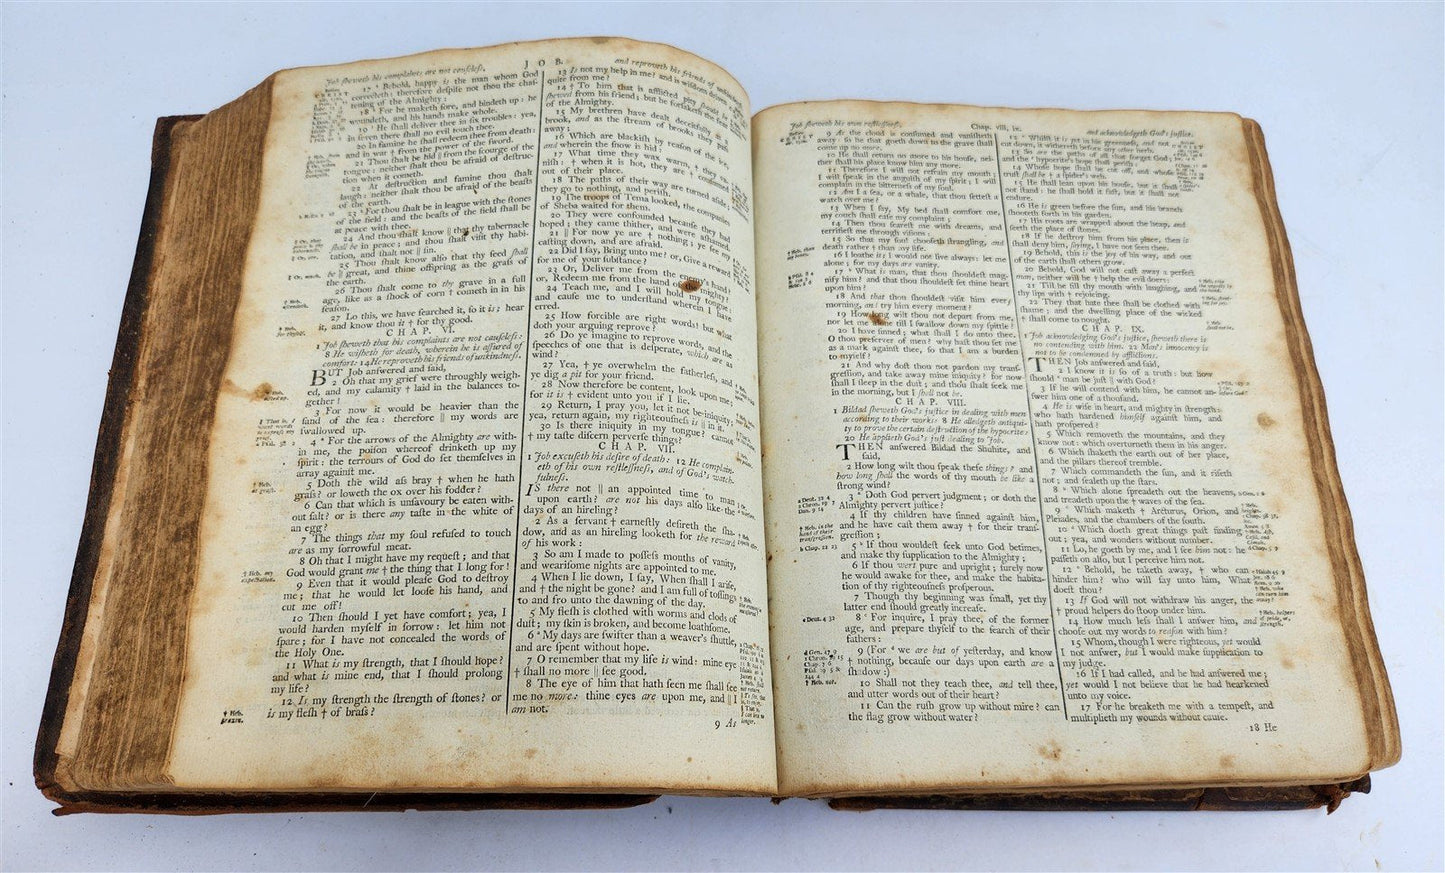 Job ſheweth his complaints are not cauſeleſs.
J O B.
and reproveth his friends of unkindneſs.
17 * Behold, happy is the man whom God
correcteth: therefore deſpiſe not thou the chaſ-
tening of the Almighty:
18 * For he maketh ſore, and bindeth up: he
woundeth, and his hands make whole.
19 * He ſhall deliver thee in ſix troubles: yea,
in ſeven there ſhall no evil touch thee.
20 In famine he ſhall redeem thee from death:
and in war † from the power of the ſword.
21 Thou ſhalt be hid || from the ſcourge of the
tongue: neither ſhalt thou be afraid of deſtruc-
tion when it cometh.
22 At deſtruction and famine thou ſhalt
laugh: neither ſhalt thou be afraid of the beaſts
of the earth.
23 * For thou ſhalt be in league with the ſtones
of the field: and the beaſts of the field ſhall be
at peace with thee.
24 And thou ſhalt know || that thy tabernacle
ſhall be in peace; and thou ſhalt viſit thy habi-
tation, and ſhalt not || ſin.
25 Thou ſhalt know alſo that thy ſeed ſhall
be || great, and thine offſpring as the graſs of
the earth.
26 Thou ſhalt come to thy grave in a full
age, like as a ſhock of corn † cometh in in his
ſeaſon.
27 Lo this, we have ſearched it, ſo it is; hear
it, and know thou it † for thy good.
C H A P. VI.
1 Job ſheweth that his complaints are not cauſeleſs:
8 He wiſheth for death, wherein he is aſſured of
comfort: 14 He reproveth his friends of unkindneſs.
BUT Job anſwered and ſaid,
2 Oh that my grief were throughly weigh-
ed, and my calamity † laid in the balances to-
gether!
3 For now it would be heavier than the
ſand of the ſea: therefore || my words are
ſwallowed up.
4 * For the arrows of the Almighty are with-
in me, the poiſon whereof drinketh up my
ſpirit: the terrours of God do ſet themſelves in
array againſt me.
5 Doth the wild aſs bray † when he hath
graſs? or loweth the ox over his fodder?
6 Can that which is unſavoury be eaten with-
out ſalt? or is there any taſte in the white of
an egg?
7 The things that my ſoul refuſed to touch
are as my ſorrowful meat.
8 Oh that I might have my requeſt; and that
God would grant me † the thing that I long for!
9 Even that it would pleaſe God to deſtroy
me; that he would let looſe his hand, and
cut me off!
10 Then ſhould I yet have comfort; yea, I
would harden myſelf in ſorrow: let him not
ſpare; for I have not concealed the words of
the Holy One.
11 What is my ſtrength, that I ſhould hope?
and what is mine end, that I ſhould prolong
my life?
12 Is my ſtrength the ſtrength of ſtones? or
is my fleſh † of braſs?
13 Is not my help in me? and is wiſdom driven
quite from me?
14 † To him that is afflicted pity ſhould be
ſhewed from his friend; but he forſaketh the fear
of the Almighty.
15 My brethren have dealt deceitfully as a
brook, and as the ſtream of brooks they paſs
away;
16 Which are blackiſh by reaſon of the ice,
and wherein the ſnow is hid:
17 What time they wax warm, † they va-
niſh: † when it is hot, they are † conſumed
out of their place.
18 The paths of their way are turned aſide;
they go to nothing, and periſh.
19 The troops of Tema looked, the companies
of Sheba waited for them.
20 They were confounded becauſe they had
hoped; they came thither, and were aſhamed.
21 || For now ye are † nothing; ye ſee my
caſting down, and are afraid.
22 Did I ſay, Bring unto me? or, Give a reward
for me of your ſubſtance?
23 Or, Deliver me from the enemy's hand?
or, Redeem me from the hand of the mighty?
24 Teach me, and I will hold my tongue;
and cauſe me to underſtand wherein I have
erred.
25 How forcible are right words! but what
doth your arguing reprove?
26 Do ye imagine to reprove words, and the
ſpeeches of one that is deſperate, which are as
wind?
27 Yea, † ye overwhelm the fatherleſs, and
ye dig a pit for your friend.
28 Now therefore be content, look upon me;
for it is † evident unto you if I lie.
29 Return, I pray you, let it not be iniquity;
yea, return again, my righteouſneſs is || in it.
30 Is there iniquity in my tongue? cannot
† my taſte diſcern perverſe things?
C H A P. VII.
1 Job excuſeth his deſire of death: 12 He complain-
eth of his own reſtleſſneſs, and of God's watch-
fulneſs.
IS there not || an appointed time to man
upon earth? are not his days alſo like the
days of an hireling?
2 As a ſervant † earneſtly deſireth the ſha-
dow, and as an hireling looketh for the reward
of his work:
3 So am I made to poſſeſs months of vanity,
and weariſome nights are appointed to me.
4 When I lie down, I ſay, When ſhall I ariſe,
and † the night be gone? and I am full of toſſings
to and fro unto the dawning of the day.
5 My fleſh is clothed with worms and clods of
duſt; my ſkin is broken, and become loathſome.
6 * My days are ſwifter than a weaver's ſhuttle,
and are ſpent without hope.
7 O remember that my life is wind: mine eye
† ſhall no more || ſee good.
8 The eye of him that hath ſeen me ſhall ſee
me no more: thine eyes are upon me, and || I
am not.
9 As
Job ſheweth his own reſtleſſneſs,
Chap. viii, ix.
and acknowledgeth God's juſtice.
9 As the cloud is conſumed and vaniſheth
away: ſo he that goeth down to the grave ſhall
come up no more.
10 He ſhall return no more to his houſe, nei-
ther ſhall his place know him any more.
11 Therefore I will not refrain my mouth;
I will ſpeak in the anguiſh of my ſpirit; I will
complain in the bitterneſs of my ſoul.
12 Am I a ſea, or a whale, that thou ſetteſt a
watch over me?
13 When I ſay, My bed ſhall comfort me,
my couch ſhall eaſe my complaint;
14 Then thou ſcareſt me with dreams, and
terrifieſt me through viſions:
15 So that my ſoul chooſeth ſtrangling, and
death rather † than my life.
16 I loathe it; I would not live always: let me
alone; for my days are vanity.
17 * What is man, that thou ſhouldeſt mag-
nify him? and that thou ſhouldeſt ſet thine heart
upon him?
18 And that thou ſhouldeſt viſit him every
morning, and try him every moment?
19 How long wilt thou not depart from me,
nor let me alone till I ſwallow down my ſpittle?
20 I have ſinned; what ſhall I do unto thee,
O thou preſerver of men? why haſt thou ſet me
as a mark againſt thee, ſo that I am a burden
to myſelf?
21 And why doſt thou not pardon my tranſ-
greſſion, and take away mine iniquity? for now
ſhall I ſleep in the duſt; and thou ſhalt ſeek me
in the morning, but I ſhall not be.
C H A P. VIII.
1 Bildad ſheweth God's juſtice in dealing with men
according to their works: 8 He alledgeth antiqui-
ty to prove the certain deſtruction of the hypocrite:
20 He applieth God's juſt dealing to Job.
THEN anſwered Bildad the Shuhite, and
ſaid,
2 How long wilt thou ſpeak theſe things? and
how long ſhall the words of thy mouth be like a
ſtrong wind?
3 * Doth God pervert judgment; or doth the
Almighty pervert juſtice?
4 If thy children have ſinned againſt him,
and he have caſt them away † for their tranſ-
greſſion;
5 * If thou wouldeſt ſeek unto God betimes,
and make thy ſupplication to the Almighty;
6 If thou wert pure and upright; ſurely now
he would awake for thee, and make the habita-
tion of thy righteouſneſs proſperous.
7 Though thy beginning was ſmall, yet thy
latter end ſhould greatly increaſe.
8 * For inquire, I pray thee, of the former
age, and prepare thyſelf to the ſearch of their
fathers:
9 (For * we are but of yeſterday, and know
† nothing, becauſe our days upon earth are a
ſhadow:)
10 Shall not they teach thee, and tell thee,
and utter words out of their heart?
11 Can the ruſh grow up without mire? can
the flag grow without water?
12 * Whilſt it is yet in his greenneſs, and not
cut down, it withereth before any other herb.
13 So are the paths of all that forget God;
and the * hypocrite's hope ſhall periſh:
14 Whoſe hope ſhall be cut off, and whoſe
truſt ſhall be † a ſpider's web.
15 He ſhall lean upon his houſe, but it ſhall
not ſtand: he ſhall hold it faſt, but it ſhall not
endure.
16 He is green before the ſun, and his branch
ſhooteth forth in his garden.
17 His roots are wrapped about the heap, and
ſeeth the place of ſtones.
18 If he deſtroy him from his place, then it
ſhall deny him, ſaying, I have not ſeen thee.
19 Behold, this is the joy of his way, and out
of the earth ſhall others grow.
20 Behold, God will not caſt away a perfect
man, neither will he † help the evil doers:
21 Till he fill thy mouth with laughing, and
thy lips with † rejoicing.
22 They that hate thee ſhall be clothed with
ſhame; and the dwelling place of the wicked
† ſhall come to nought.
C H A P. IX.
1 Job acknowledging God's juſtice, ſheweth there is
no contending with him. 22 Man's innocency is
not to be condemned by afflictions.
THEN Job anſwered and ſaid,
2 I know it is ſo of a truth: but how
ſhould * man be juſt || with God?
3 If he will contend with him, he cannot an-
ſwer him one of a thouſand.
4 He is wiſe in heart, and mighty in ſtrength:
who hath hardened himſelf againſt him, and
hath proſpered?
5 Which removeth the mountains, and they
know not: which overturneth them in his anger.
6 Which ſhaketh the earth out of her place,
and the pillars thereof tremble.
7 Which commandeth the ſun, and it riſeth
not; and ſealeth up the ſtars.
8 * Which alone ſpreadeth out the heavens,
and treadeth upon the † waves of the ſea.
9 * Which maketh † Arcturus, Orion, and
Pleiades, and the chambers of the ſouth.
10 * Which doeth great things paſt finding
out; yea, and wonders without number.
11 Lo, he goeth by me, and I ſee him not: he
paſſeth on alſo, but I perceive him not.
12 * Behold, he taketh away, † who can
hinder him? who will ſay unto him, What
doeſt thou?
13 If God will not withdraw his anger, the
† proud helpers do ſtoop under him.
14 How much leſs ſhall I anſwer him, and
chooſe out my words to reaſon with him?
15 Whom, though I were righteous, yet would
I not anſwer, but I would make ſupplication to
my judge.
16 If I had called, and he had anſwered me;
yet would I not believe that he had hearkened
unto my voice.
17 For he breaketh me with a tempeſt, and
multiplieth my wounds without cauſe.
18 He